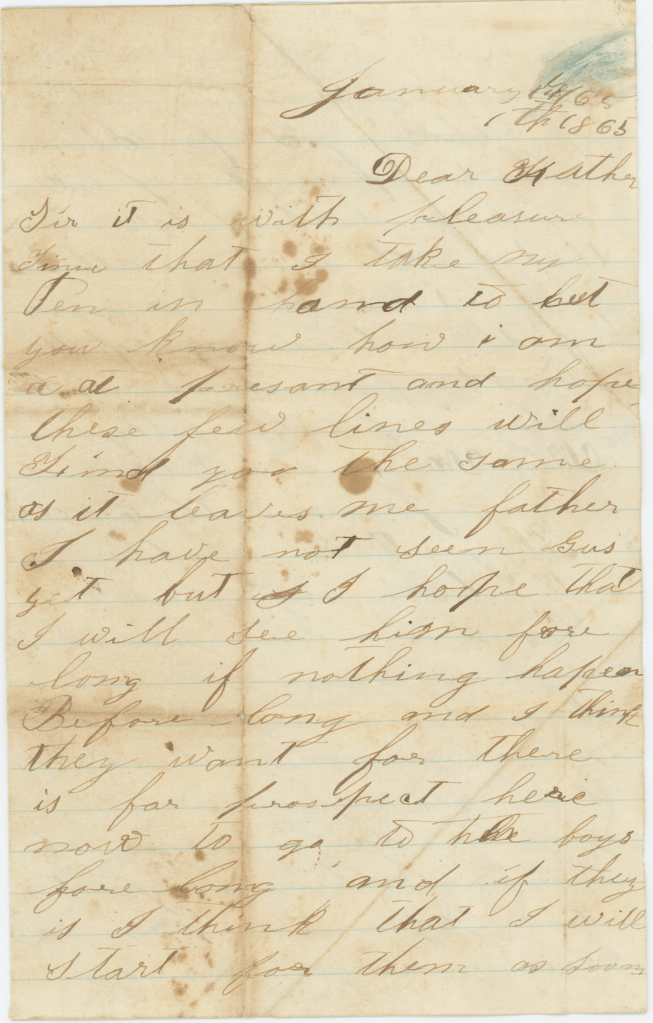 January 14/65
th 1865
Dear Father
Sir it is with pleasure
Time that I take my
Pen in hand to let
you know how i am
a at presant and hope
these few lines will
Find you the same
as it leaves me father
I have not seen Gus
yet but I hope that
I will see him fore
long if nothing hapen
Before long and I think
they wont for there
is far prospect here
now to go to the boys
fore long and if they
is I think that I will
start for them as soon